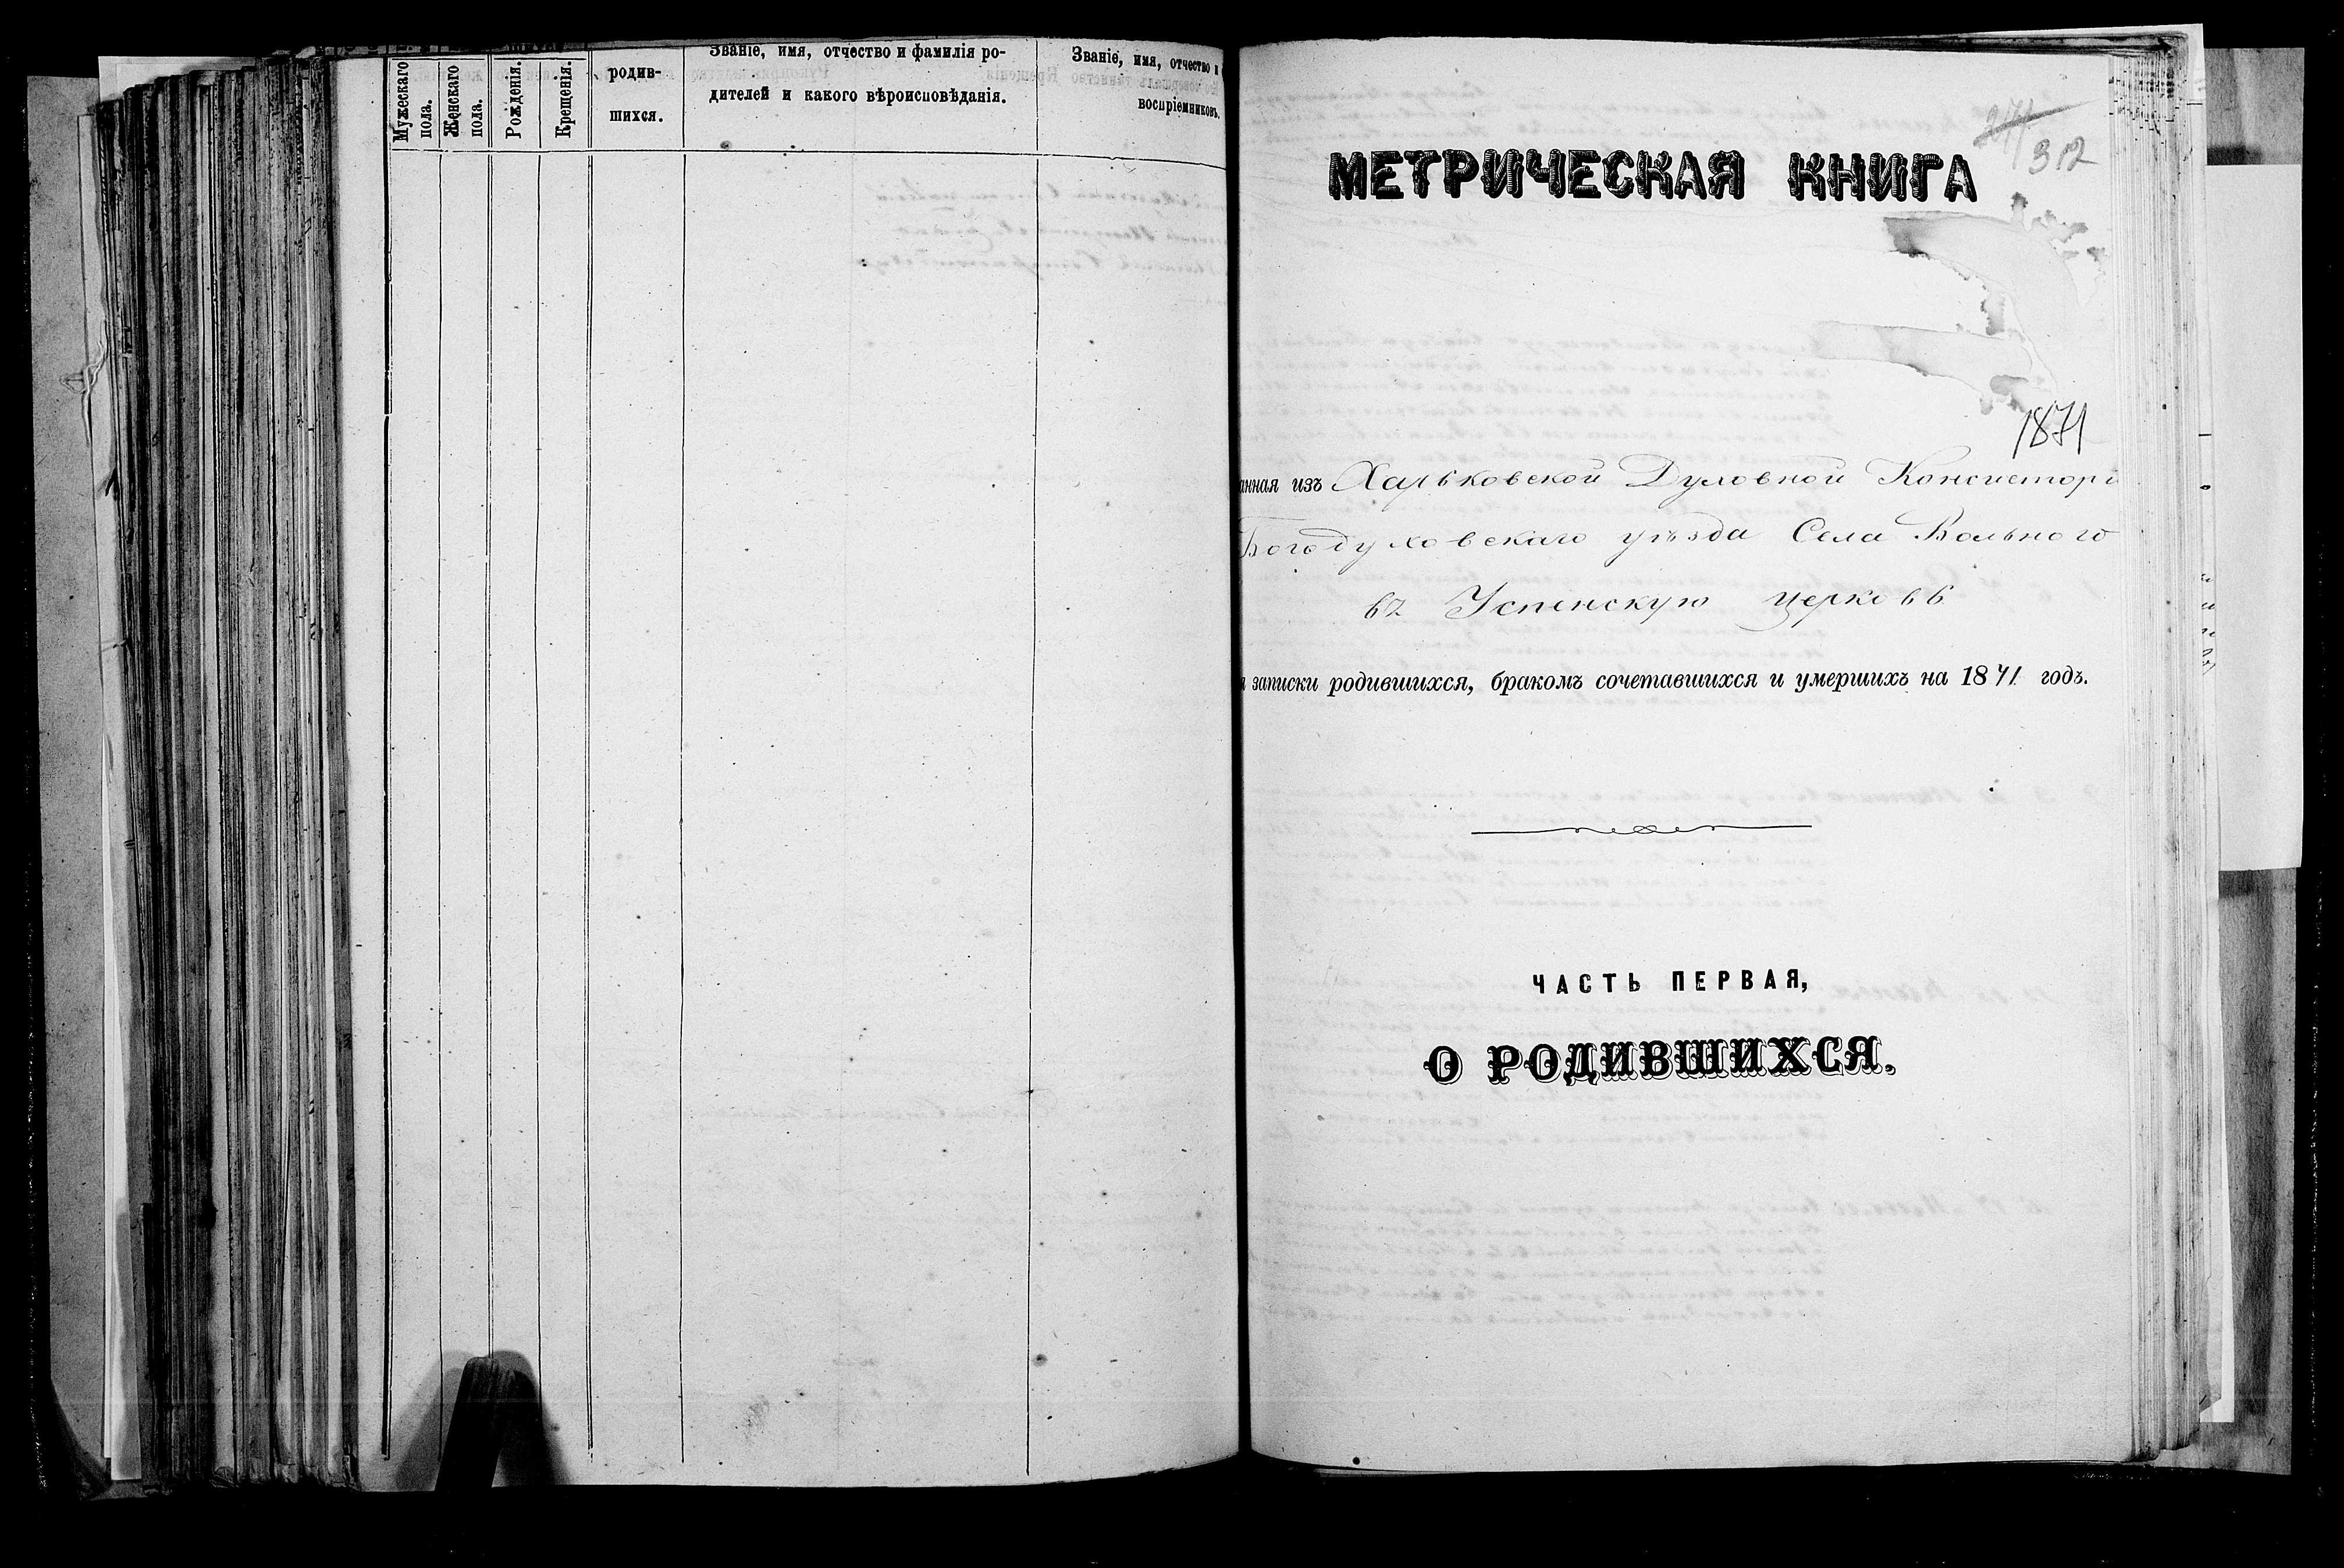 Мужескаго
пола.
Женскаго
пола.
Рожденія.
Крещенія.
родив-
шихся.
Званіе, имя, отчество и фамилія ро-
дителей и какого вѣроисповѣданія.
Званіе, имя, отчество и
воспріемниковъ.
312
МЕТРИЧЕСКАЯ КНИГА
1871
анная изъ Харьковской Духовной Консисторі
Богодуховскаго уѣзда Села Вольного
въ Успенскую церковь
я записки родившихся, бракомъ сочетавшихся и умершихъ на 1871 годъ.
ЧАСТЬ ПЕРВАЯ,
О РОДИВШИХСЯ.